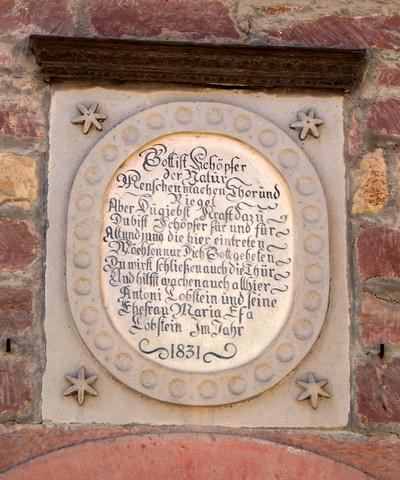 Gott ist Schöpfer
der Natur
Menschen machen Thor und
Riegel
Aber Du giebst Kraft dazu
Du bist Schöpfer für und für
Alt und jung die hier eintreten
Möchten nur Dich Gott gebeten
Du wirst schließen auch die Thür
Und hilfst wachen auch all hier
Antoni Lobstein und seine
Ehefrau Maria Efa
Lobstein Im Jahr
1831